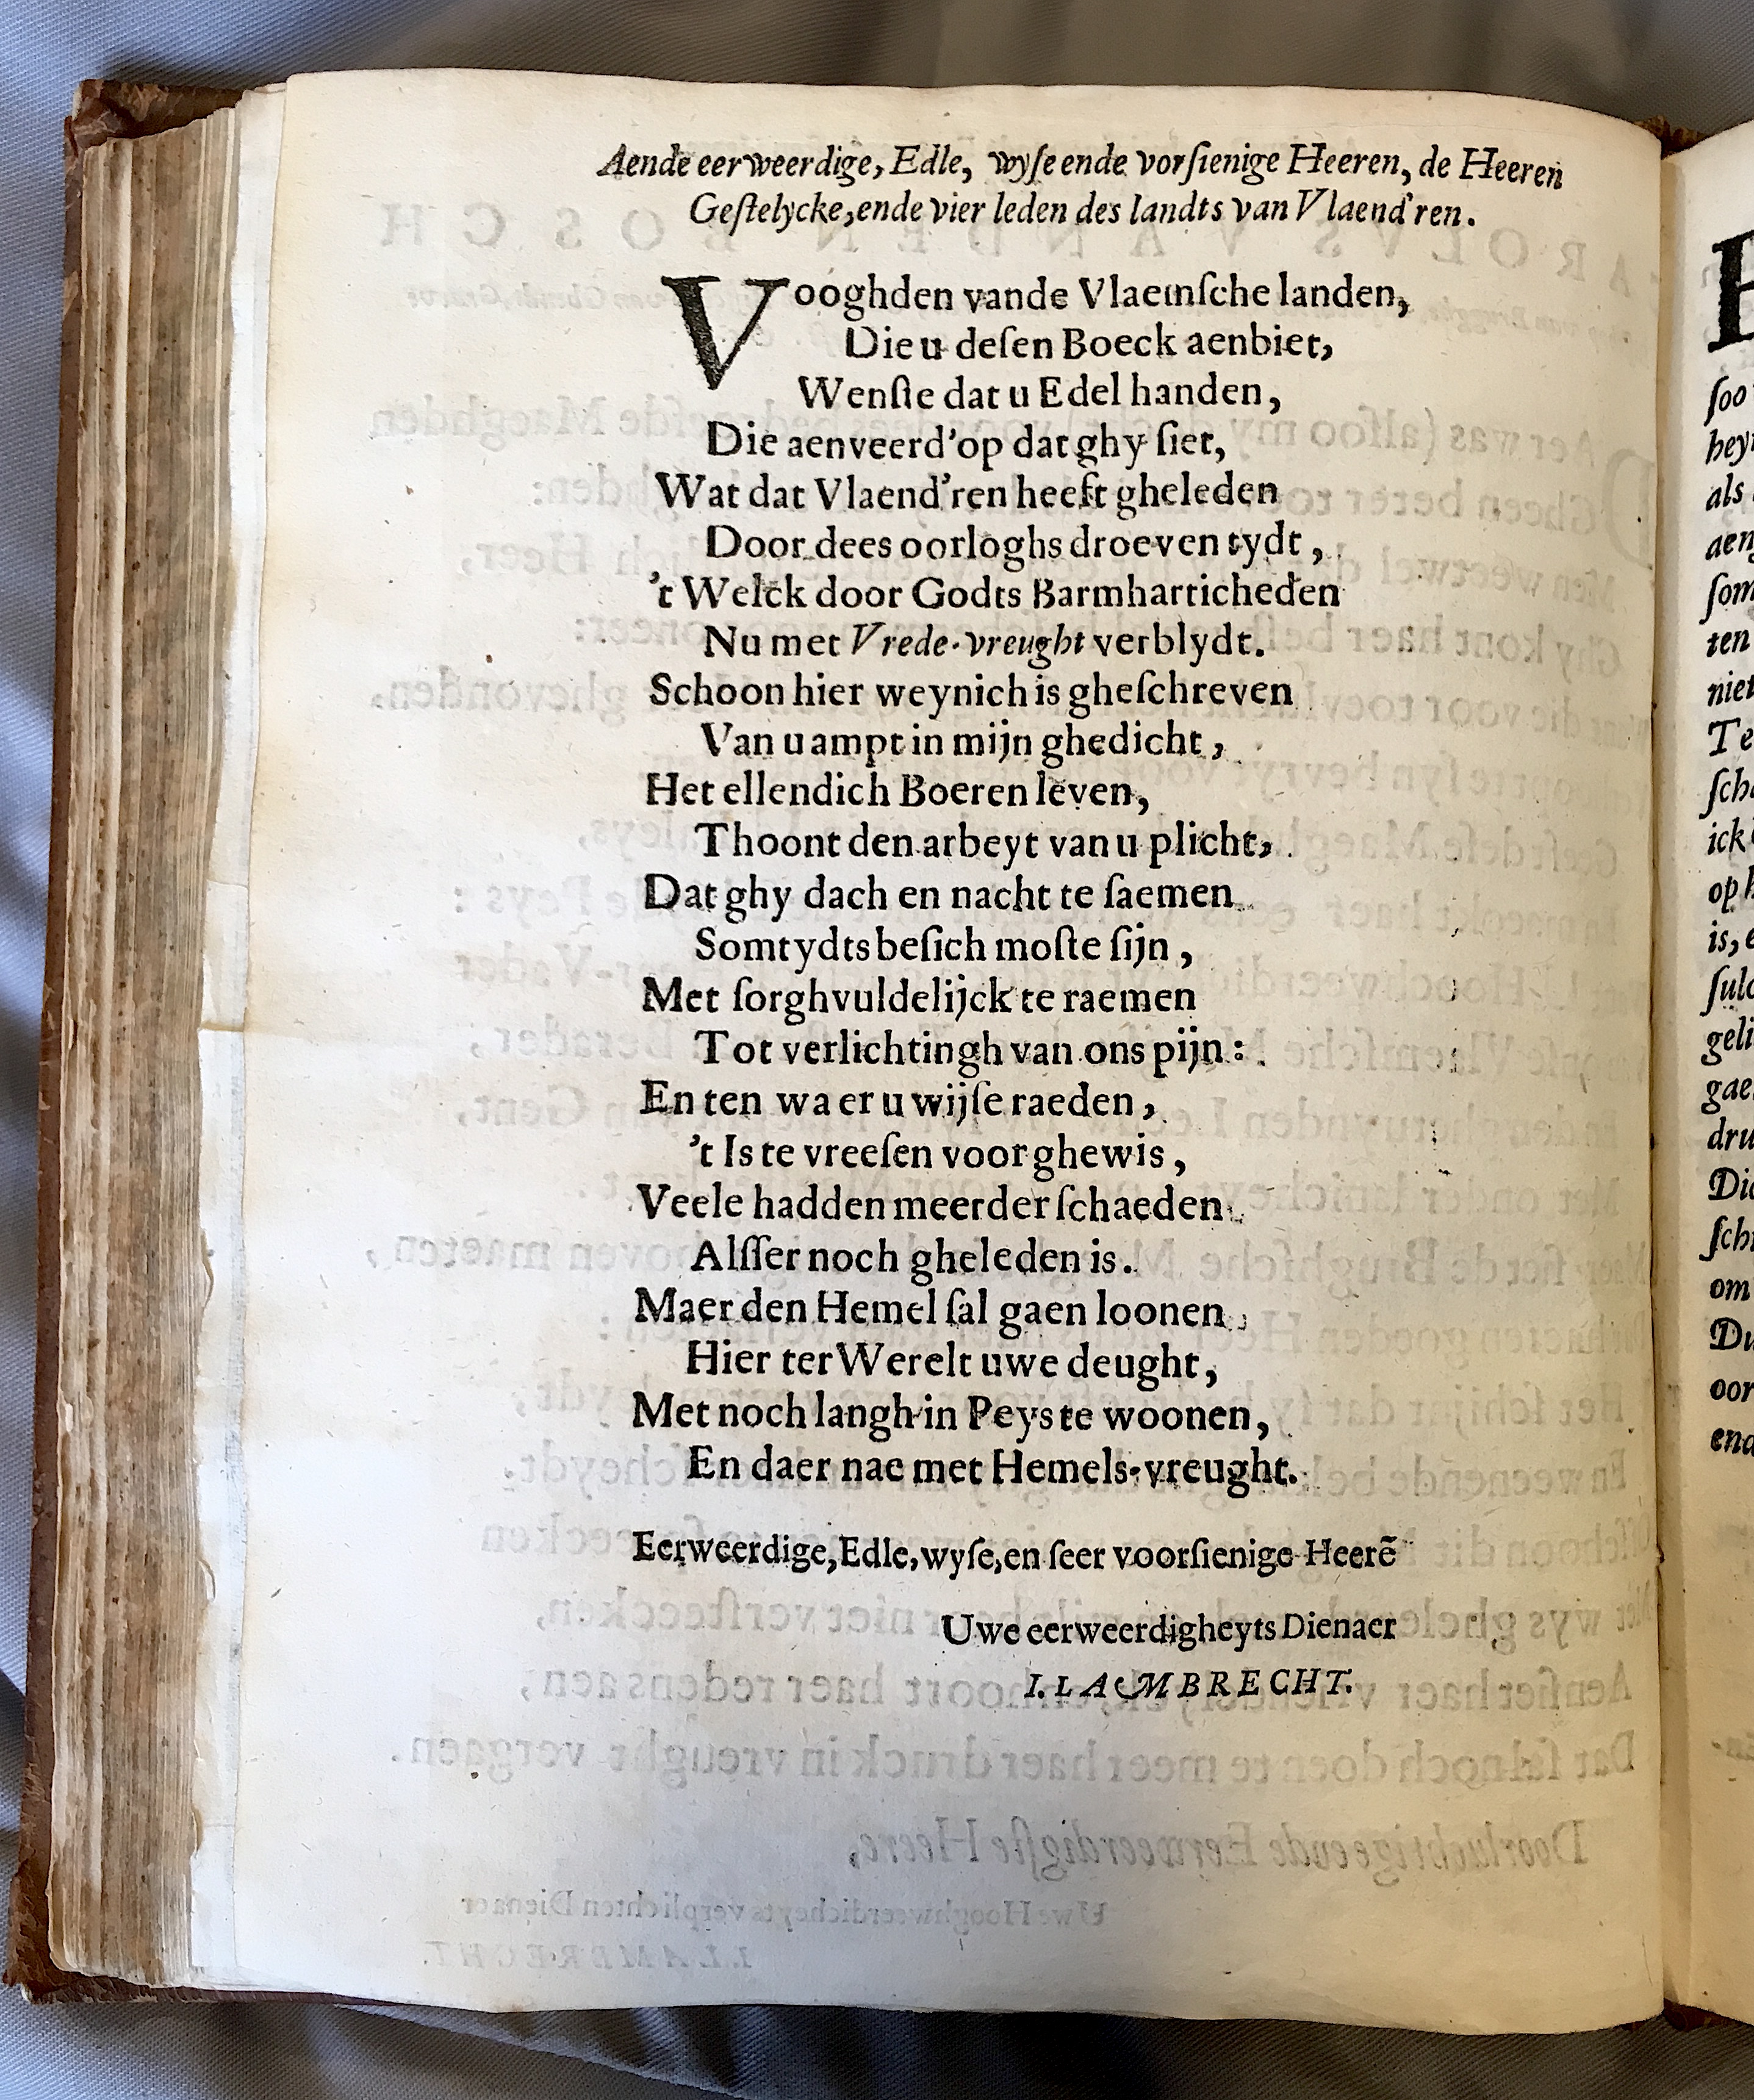 Aende eerweerdige, Edle, wyſe ende vorſienige Heeren, de Heeren
Geſtelycke, ende vier leden des landts van Vlaend'ren.
Vooghden vande Vlaemſche landen,
Die u deſen Boeck aenbiet,
Wenſte dat u Edel handen,
Die aenveerd' op dat ghy ſiet,
Wat dat Vlaend'ren heeft gheleden
Door dees oorloghs droeven tydt,
't Welck door Godts Barmharticheden
Nu met Vrede-vreught verblydt.
Schoon hier weynich is gheſchreven
Van u ampt in mijn ghedicht,
Het ellendich Boeren leven,
Thoont den arbeyt van u plicht,
Dat ghy dach en nacht te ſaemen
Somtydts beſich moſte ſijn,
Met ſorghvuldelijck te raemen
Tot verlichtingh van ons pijn:
En ten waer u wijſe raeden,
't Is te vreeſen voor ghewis,
Veele hadden meerder ſchaeden
Alſſer noch gheleden is.
Maer den Hemel ſal gaen loonen,
Hier ter Werelt uwe deught,
Met noch langh in Peys te woonen,
En daer nae met Hemels-vreught.
Eerweerdige, Edle, wyſe, en ſeer voorſienige Heerẽ
Uwe eerweerdigheyts Dienaer
I. LAMBRECHT.
ſoo
als
ſom
ten
niet
ick
is,
om